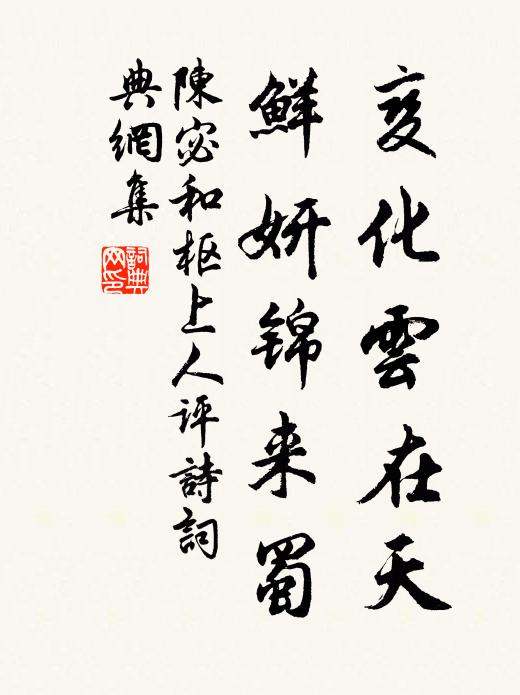 变化雲在天
鮮妍锦来蜀
陳宓和枢上人评詩詞
典網集
詞典网印